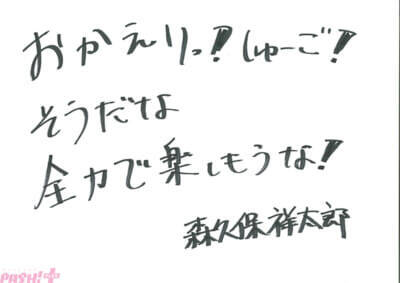 おかえりっ!しゅーご!
そうだな
全力で楽しもうな!
森久保祥太郎
PASH!+